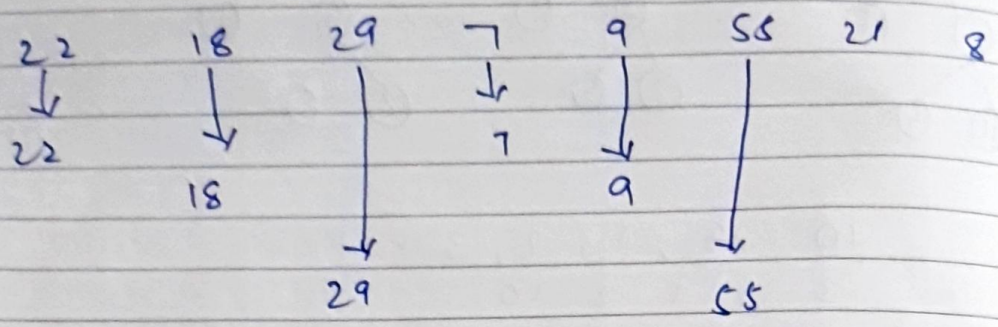 22 18 29 7 9 55 21 8
22 7
18 9
29 55